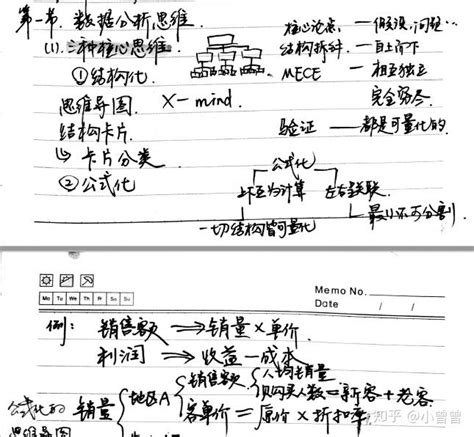 第一节. 数据分析思维
(1). 三种核心思维.
①结构化
思维导图. X-mind.
结构卡片.
↳ 卡片分类
②公式化
核心论点. — 假设,问题…
结构拆解. — 自上而下
MECE — 相互独立
完全穷尽.
验证 — 都是可量化的.
公式化
上下互为计算 左右呈关联.
最小不可分割.
一切结构皆可量化
Memo No.
Mo Tu We Th Fr Sa Su
Date / /
例: 销售额 ⇒ 销量 × 单价.
利润 ⇒ 收益 — 成本
公式化的 销量 地区A 销售额 人均销量
购买人数 = 新客 + 老客
客单价 = 原价 × 折扣率
思维导图
知乎 @小曾曾